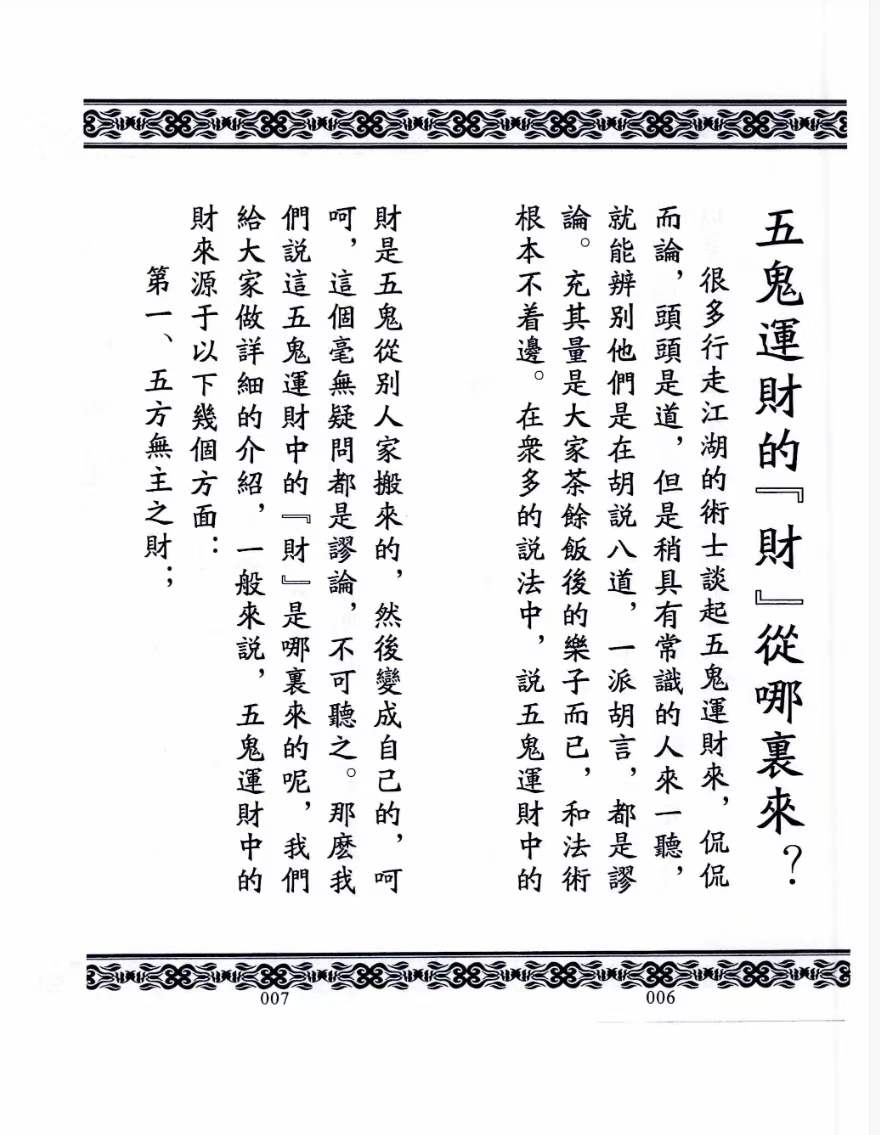 五鬼運財的『財』從哪裏來？
很多行走江湖的術士談起五鬼運財來，侃侃
而論，頭頭是道，但是稍具有常識的人來一聽，
就能辨別他們是在胡説八道，一派胡言，都是謬
論。充其量是大家茶餘飯後的樂子而已，和法術
根本不着邊。在衆多的説法中，説五鬼運財中的
財是五鬼從别人家搬來的，然後變成自己的，呵
呵，這個毫無疑問都是謬論，不可聽之。那麽我
們説這五鬼運財中的『財』是哪裏來的呢，我們
給大家做詳細的介紹，一般來説，五鬼運財中的
財來源于以下幾個方面：
第一、五方無主之財；
006
007